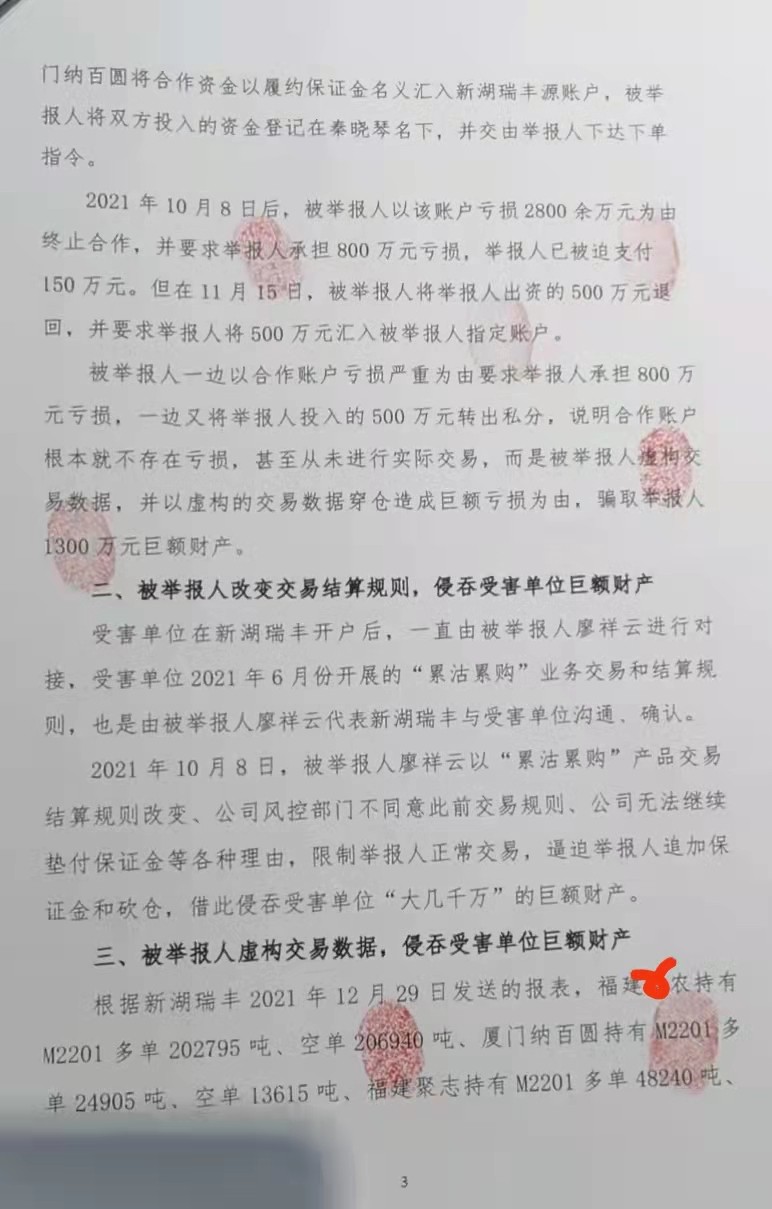 门纳百圆将合作资金以履约保证金名义汇入新湖瑞丰源账户，被举
报人将双方投入的资金登记在秦晓琴名下，并交由举报人下达下单
指令。
2021 年 10 月 8 日后，被举报人以该账户亏损 2800 余万元为由
终止合作，并要求举报人承担 800 万元亏损，举报人已被迫支付
150 万元。但在 11 月 15 日，被举报人将举报人出资的 500 万元退
回，并要求举报人将 500 万元汇入被举报人指定账户。
被举报人一边以合作账户亏损严重为由要求举报人承担 800 万
元亏损，一边又将举报人投入的 500 万元转出私分，说明合作账户
根本就不存在亏损，甚至从未进行实际交易，而是被举报人虚构交
易数据，并以虚构的交易数据穿仓造成巨额亏损为由，骗取举报人
1300 万元巨额财产。
二、被举报人改变交易结算规则，侵吞受害单位巨额财产
受害单位在新湖瑞丰开户后，一直由被举报人廖祥云进行对
接，受害单位 2021 年 6 月份开展的“累沽累购”业务交易和结算规
则，也是由被举报人廖祥云代表新湖瑞丰与受害单位沟通、确认。
2021 年 10 月 8 日，被举报人廖祥云以“累沽累购”产品交易
结算规则改变、公司风控部门不同意此前交易规则、公司无法继续
垫付保证金等各种理由，限制举报人正常交易，逼迫举报人追加保
证金和砍仓，借此侵吞受害单位“大几千万”的巨额财产。
三、被举报人虚构交易数据，侵吞受害单位巨额财产
根据新湖瑞丰 2021 年 12 月 29 日发送的报表，福建农持有
M2201 多单 202795 吨、空单 206940 吨、厦门纳百圆持有 M2201 多
单 24905 吨、空单 13615 吨、福建聚志持有 M2201 多单 48240 吨、
3